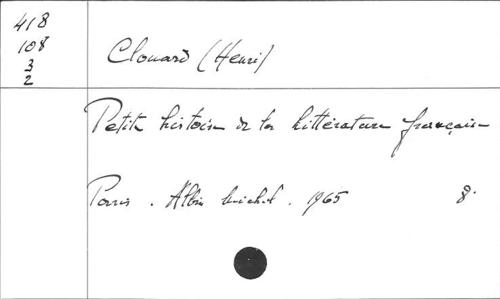 418
108
3
2
Clouard (Henri)
Petite histoire de la littérature française
Paris. Albin Michel. 1965 8°